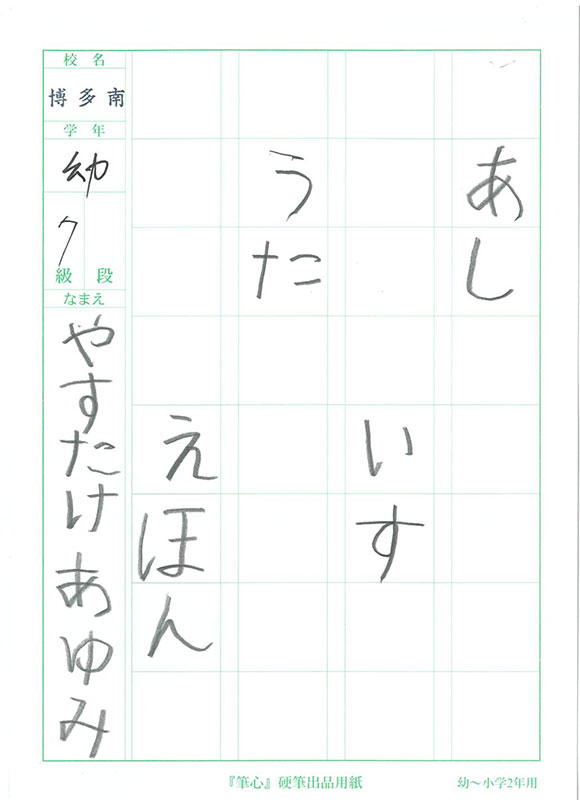 あし
いす
うた
えほん
校名
博多南
学年
幼
7
級 段
なまえ
やすたけあゆみ
『筆心』硬筆出品用紙
幼～小学2年用